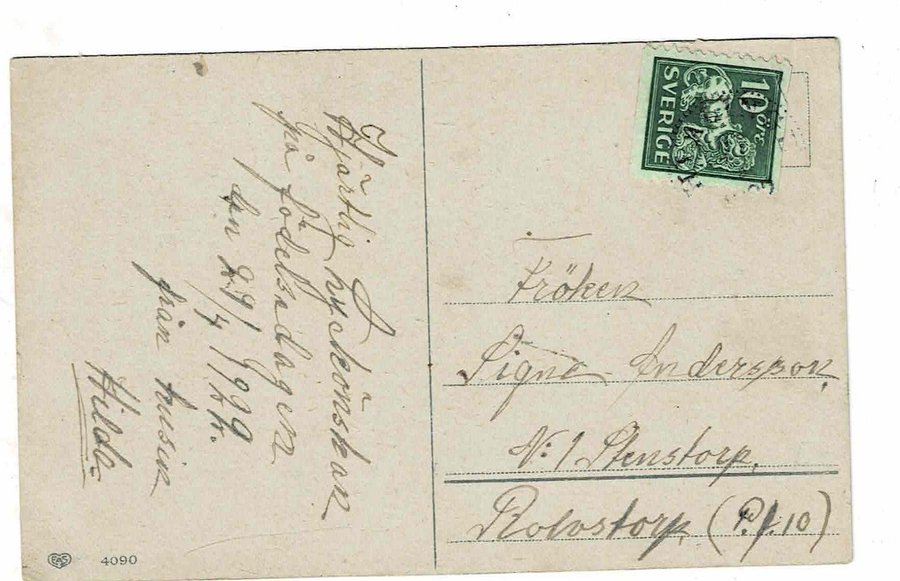 Hjärtlig lyckönskan
på födelsedagen
den 29/4 1929.
från kusin
Hilda
10 öre
SVERIGE
Fröken
Signe Andersson,
N:1 Stenstorp,
Rolvstorp (P.l.10)
EAS
4090